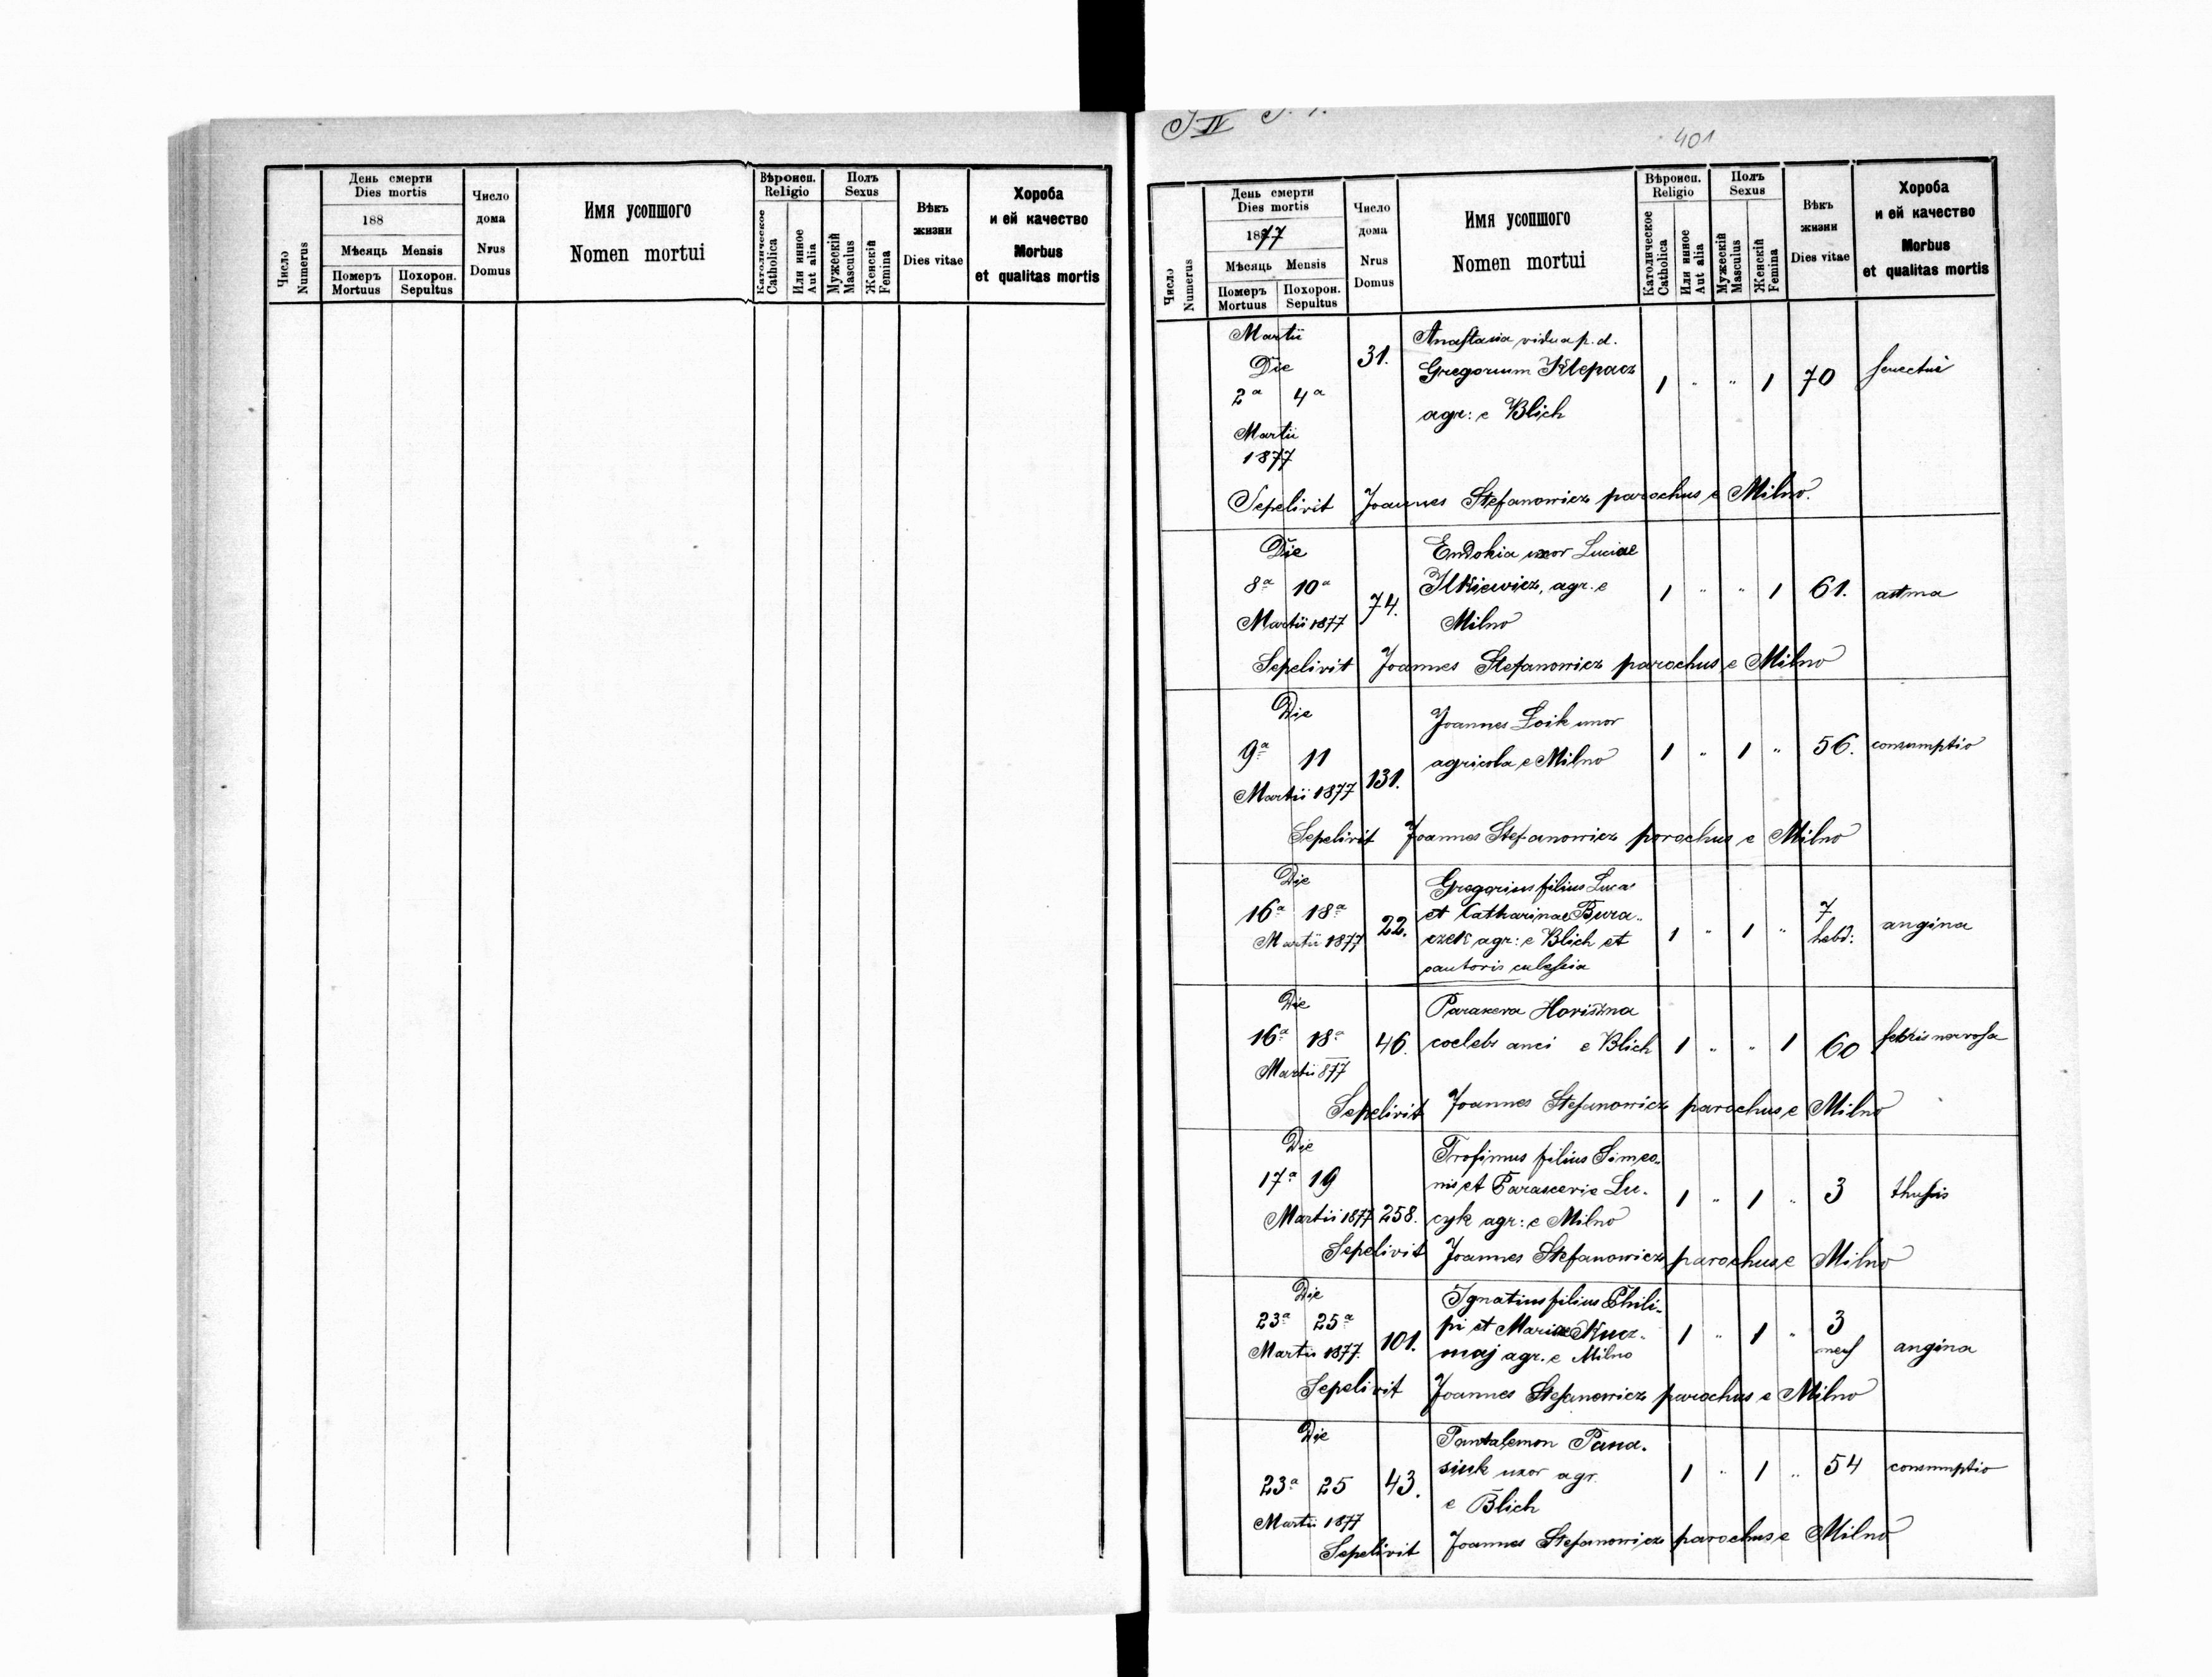 Число Numerus
День смерти
Dies mortis
188
Мѣсяць Mensis
Померъ Mortuus
Похорон. Sepultus
Число дома
Nrus Domus
Имя усопшого
Nomen mortui
Вѣроисп.
Religio
Католическое Catholica
Или инное Aut alia
Полъ
Sexus
Мужескій Masculus
Женскій Femina
Вѣкъ жизни
Dies vitae
Хороба
и ей качество
Morbus
et qualitas mortis
401
Число Numerus
День смерти
Dies mortis
1877
Мѣсяць Mensis
Померъ Mortuus
Похорон. Sepultus
Число дома
Nrus Domus
Имя усопшого
Nomen mortui
Вѣроисп.
Religio
Католическое Catholica
Или инное Aut alia
Полъ
Sexus
Мужескій Masculus
Женскій Femina
Вѣкъ жизни
Dies vitae
Хороба
и ей качество
Morbus
et qualitas mortis
Martii
Die
2a 4a
Martii
1877
31.
Anastasia vidua p. d.
Gregorium Klepacz
agr: e Blich
1 " " 1 70
Sepelivit Joannes Stefanowicz parochus e Milno.
Die
8a 10a
Martii 1877
74.
Eudokia uxor Luciae
Ilkiewicz, agr. e
Milno
1 " " 1 61. astma
Sepelivit Joannes Stefanowicz parochus e Milno
Die
9a 11
Martii 1877
131.
Joannes Łoik uxor
agricola e Milno
1 " 1 " 56. consumptio
Sepelivit Joannes Stefanowicz parochus e Milno
Die
16a 18a
Martii 1877
22.
Gregorius filius Luca
et Catharinae Bura-
czek agr: e Blich et
1 " 1 " 7 hebd: angina
Die
16a 18a
Martii 877
46.
Parascева
coelebs e Blich
1 " " 1 60 febris nervosa
Sepelivit Joannes Stefanowicz parochus e Milno
Die
17a 19
Martii 1877
258.
Trofimus filius Simeo-
nis et Parascevie Lu-
cyk agr: e Milno
1 " 1 " 3 thussis
Sepelivit Joannes Stefanowicz parochus e Milno
Die
23a 25a
Martii 1877.
101.
Ignatius filius Phili-
pi et Mariae Kucz-
maj agr. e Milno
1 " 1 " 3 mens angina
Sepelivit Joannes Stefanowicz parochus e Milno
Die
23a 25
Martii 1877
43.
Pantalemon Pana-
siuk uxor agr.
e Blich
1 " 1 " 54 consumptio
Sepelivit Joannes Stefanowicz parochus e Milno